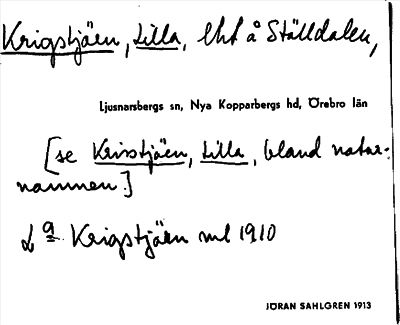 Krigstjäen, Lilla, lht å Ställdalen,
Ljusnarsbergs sn, Nya Kopparbergs hd, Örebro län
[se Krisstjäen, Lilla, bland natur-
namnen.]
L a Krigstjäen ml 1910
JÖRAN SAHLGREN 1913